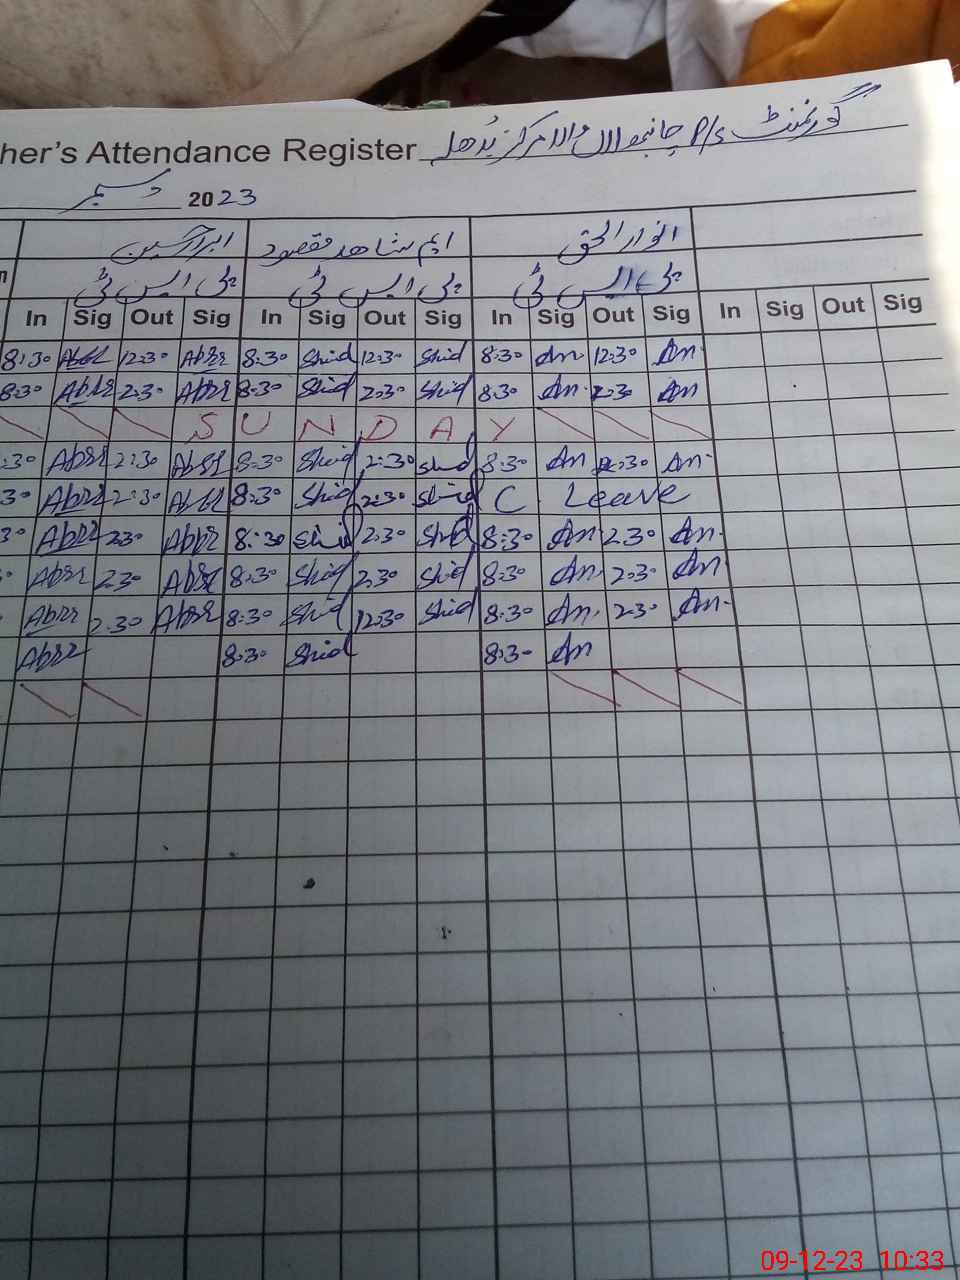 her's Attendance Register گورنمنٹ P/s چانبھو والا مرکز بُدھلہ
دسمبر 2023
ابرار حسین ایم شاھد مقصود انوار الحق
پی ایس ٹی پی ایس ٹی پی ایس ٹی
In Sig Out Sig In Sig Out Sig In Sig Out Sig In Sig Out Sig
8:30 12:30 Abrr 8:30 Shid 12:30 Shid 8:30 An 12:30 An
8:30 Abrr 2:30 Abrr 8:30 Shid 2:30 Shid 8:30 An 2:30 An
SUNDAY
:30 Abrr 2:30 Abrr 8:30 Shid 2:30 Shid 8:30 An 2:30 An
30 Abrr 2:30 Abrr 8:30 Shid 2:30 Shid C. Leave
30 Abrr 2:30 Abrr 8:30 Shid 2:30 Shid 8:30 An 2:30 An
Abrr 2:30 Abrr 8:30 Shid 2:30 Shid 8:30 An 2:30 An
Abrr 2:30 Abrr 8:30 Shid 12:30 Shid 8:30 An 2:30 An
Abrr 8:30 Shid 8:30 An
09-12-23 10:33